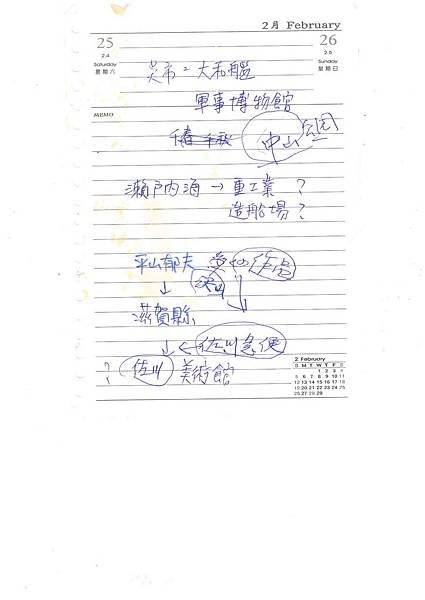 2月 February
25
26
2.4
2.5
Saturday
Sunday
星期六
星期日
吳市：大和艦
軍事博物館
MEMO
千春 千秋
中山公园
瀨戶內海 → 重工業 ？
造船場？
平山郁夫 作品
↓
滋賀縣
↓ ← 佐川急便
？ 佐川 美術館
2 February
S M T W T F S
1 2 3 4
5 6 7 8 9 10 11
12 13 14 15 16 17 18
19 20 21 22 23 24 25
26 27 28 29